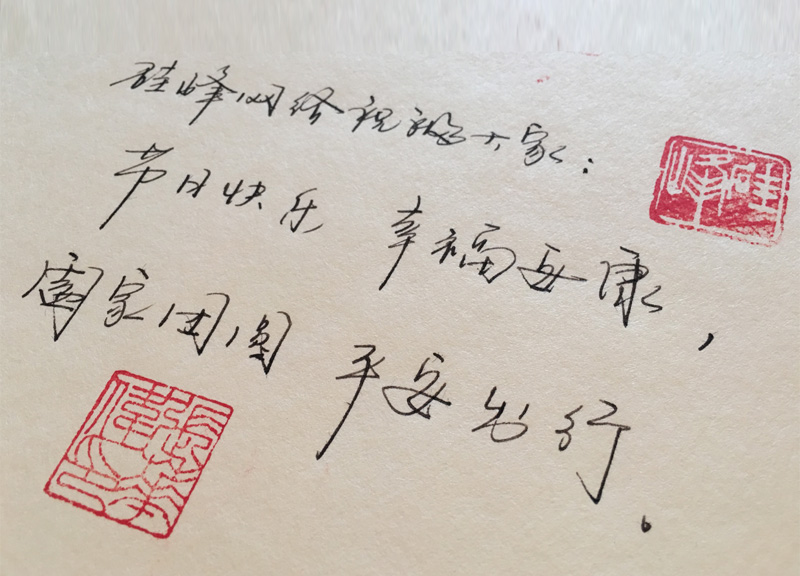 硅峰网络祝福大家：
节日快乐 幸福安康，
阖家团圆 平安出行。
硅峰